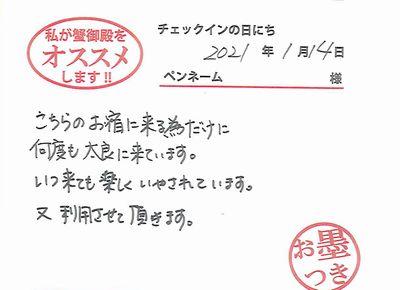 私が蟹御殿を
オススメ
します!!
チェックインの日にち
2021 年 1 月 14 日
ペンネーム 様
こちらのお宿に来る為だけに
何度も太良に来ています。
いつ来ても楽しくいやされています。
又利用させて頂きます。
お墨
つき